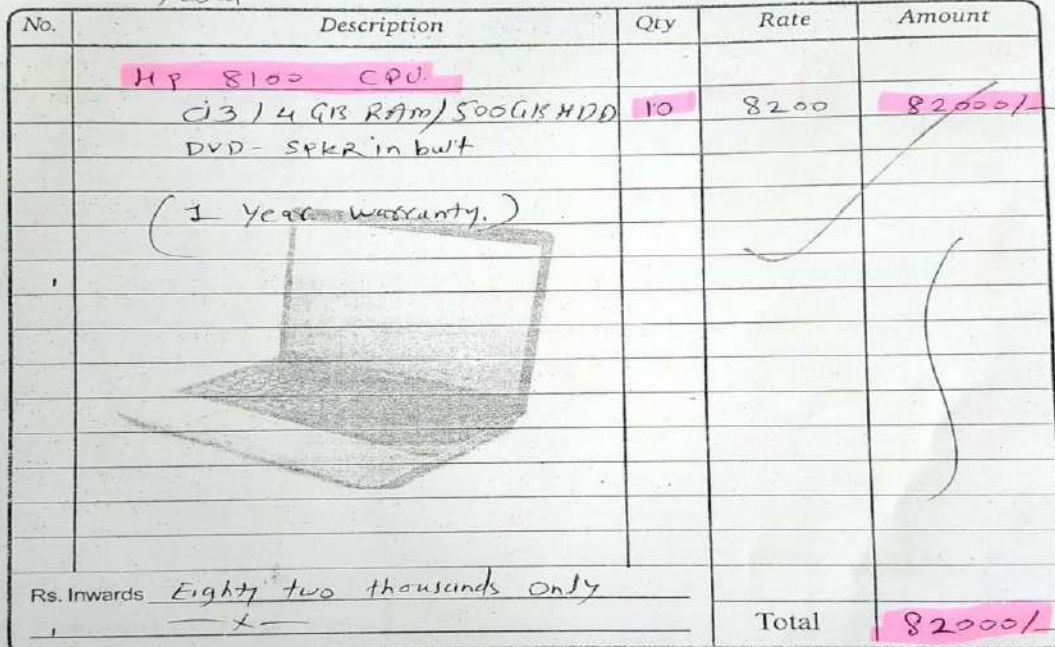 No. Description Qty Rate Amount
HP 8100 CPU.
Ci3 / 4 GB RAM / 500GB HDD 10 8200 82000/-
DVD - SPKR in buit
(1 Year warranty.)
Rs. Inwards Eighty two thousands Only
— x —
Total 82000/-